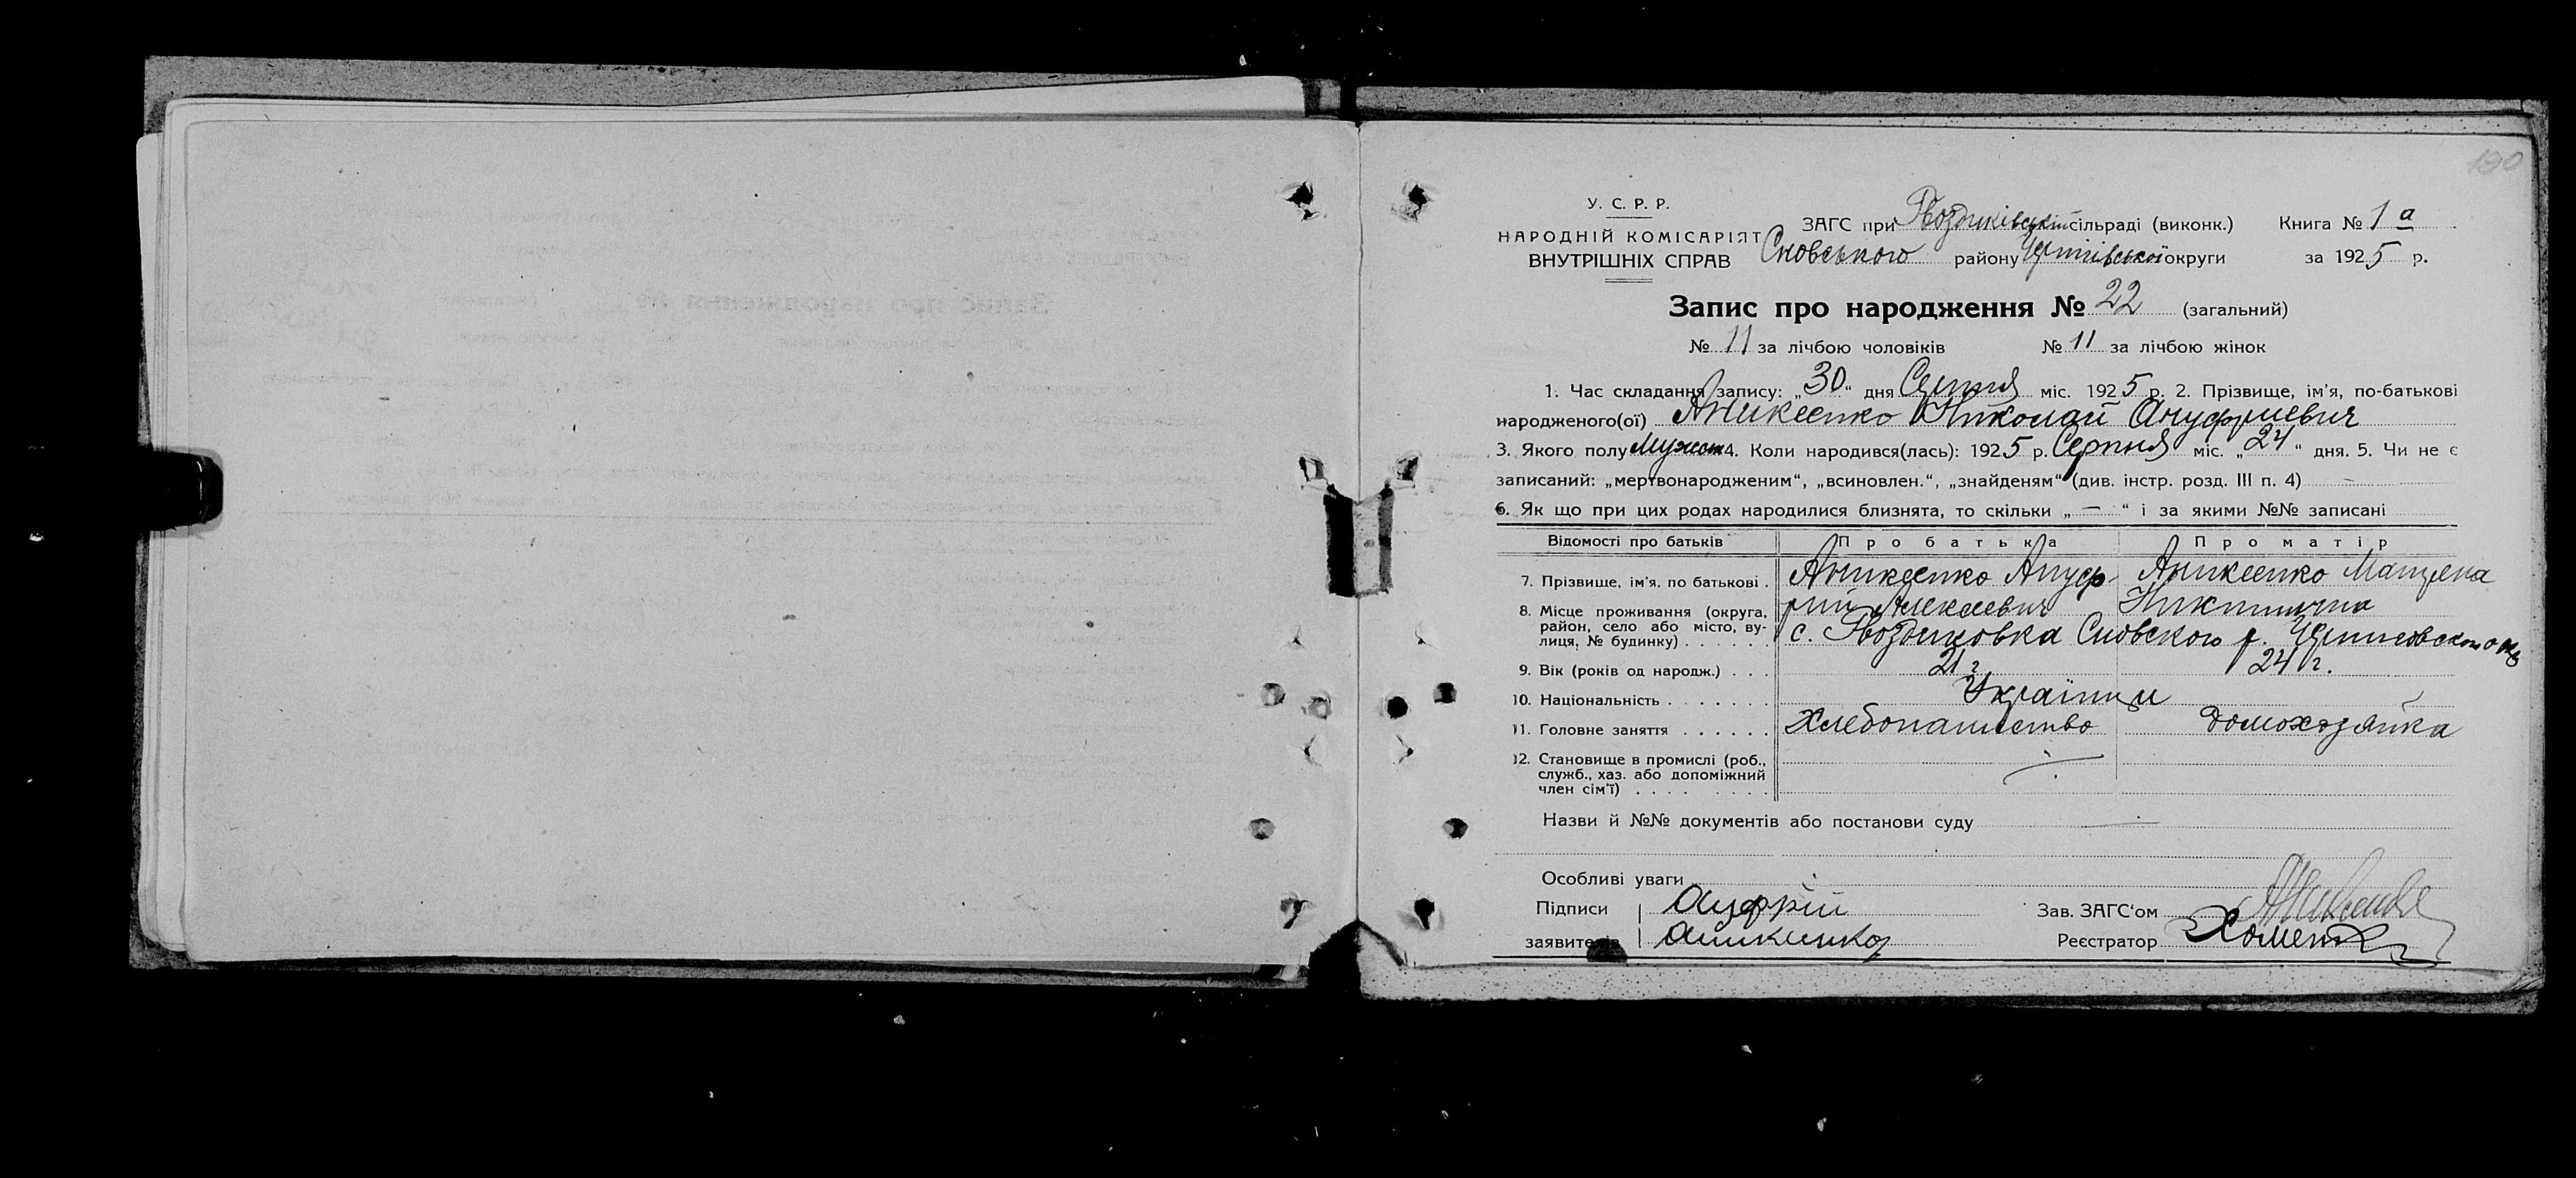 190
У. С. Р. Р.
НАРОДНІЙ КОМІСАРІЯТ
ВНУТРІШНІХ СПРАВ
ЗАГС при Гвоздиківській сільраді (виконк.) Книга № 1 а
Сновського району Чернігівської округи за 1925 р.
Запис про народження № 22 (загальний)
№ 11 за лічбою чоловіків № 11 за лічбою жінок
1. Час складання запису: „30“ дня Серпня міс. 1925 р. 2. Прізвище, ім'я, по-батькові
народженого(ої) Аникеенко Николай Ануфриевич
3. Якого полу Мужск 4. Коли народився(лась): 1925 р. Серпня міс. „24“ дня. 5. Чи не є
записаний: „мертвонародженим“, „всиновлен.“, „знайденям“ (див. інстр. розд. III п. 4) —
6. Як що при цих родах народилися близнята, то скільки „ — “ і за якими №№ записані
Відомості про батьків Про батька Про матір
7. Прізвище, ім'я, по батькові . Аникеенко Ануф- Аникеенко Матрена
рий Алексеевич Никитична
8. Місце проживання (округа, район, село або місто, ву-
лиця, № будинку) . . . . . . с. Гвоздиковка Сновского р. Черниговской окр
9. Вік (років од народж.) . . . 21 г. 24 г.
10. Національність . . . . . . . Українци
11. Головне заняття . . . . . . Хлебопашество домохозяйка
12. Становище в промислі (роб.,
служб., хаз. або допоміжний
член сім'ї) . . . . . . . .
Назви й №№ документів або постанови суду —
Особливі уваги
Підписи Ануфрій Зав. ЗАГС‘ом
заявителів Аникиенко Реєстратор Хоменко